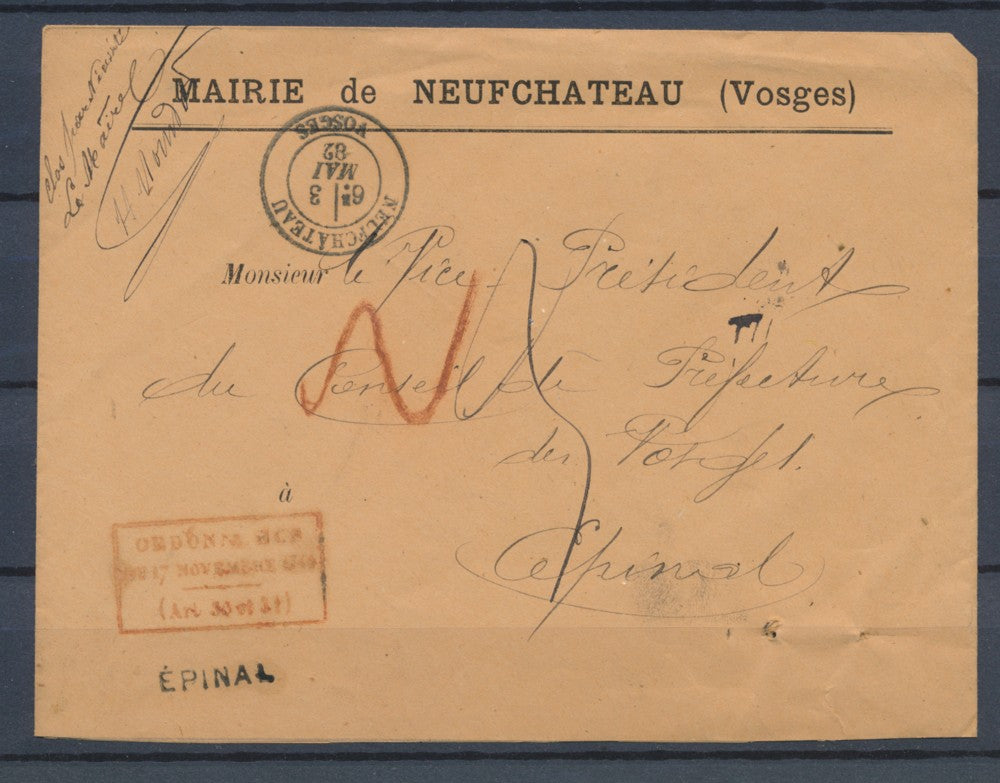 clos par nécessité
Le Maire
MAIRIE de NEUFCHATEAU (Vosges)
NEUFCHÂTEAU
6E 3
MAI
82
VOSGES
Monsieur le Vice-Président
du Conseil de Préfecture
des Vosges.
à
Epinal
ORDONNANCE
DU 17 NOVEMBRE 1844
(Art. 30 et 31)
ÉPINAL